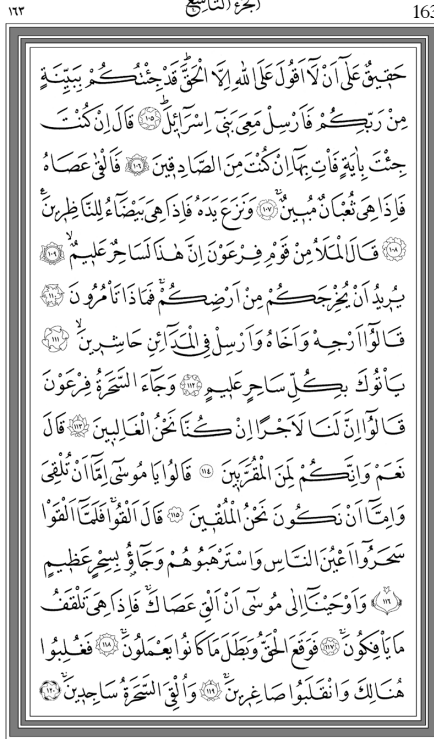 ١٦٣ الجزء التاسع 163
حَقِيقٌ عَلٰٓى اَنْ لَٓا اَقُولَ عَلَى اللّٰهِ اِلَّا الْحَقَّۜ قَدْ جِئْتُكُمْ بِبَيِّنَةٍ
مِنْ رَبِّكُمْ فَاَرْسِلْ مَعِيَ بَنٓى اِسْرَٓائِلَۜ ﴿١٠٥﴾ قَالَ اِنْ كُنْتَ
جِئْتَ بِاٰيَةٍ فَأْتِ بِهَٓا اِنْ كُنْتَ مِنَ الصَّادِقِينَ ﴿١٠٦﴾ فَاَلْقٰى عَصَاهُ
فَاِذَا هِىَ ثُعْبَانٌ مُبِينٌۚ ﴿١٠٧﴾ وَنَزَعَ يَدَهُ فَاِذَا هِىَ بَيْضَٓاءُ لِلنَّاظِرِينَ۟
﴿١٠٨﴾ قَالَ الْمَلَاُ مِنْ قَوْمِ فِرْعَوْنَ اِنَّ هٰذَا لَسَاحِرٌ عَلِيمٌۙ ﴿١٠٩﴾
يُرِيدُ اَنْ يُخْرِجَكُمْ مِنْ اَرْضِكُمْۚ فَمَاذَا تَأْمُرُونَ ﴿١١٠﴾
قَالُٓوا اَرْجِهْ وَاَخَاهُ وَاَرْسِلْ فِى الْمَدَٓائِنِ حَاشِرِينَۙ ﴿١١١﴾
يَأْتُوكَ بِكُلِّ سَاحِرٍ عَلِيمٍ ﴿١١٢﴾ وَجَٓاءَ السَّحَرَةُ فِرْعَوْنَ
قَالُٓوا اِنَّ لَنَا لَاَجْرًا اِنْ كُنَّا نَحْنُ الْغَالِبِينَ ﴿١١٣﴾ قَالَ
نَعَمْ وَاِنَّكُمْ لَمِنَ الْمُقَرَّبِينَ ﴿١١٤﴾ قَالُوا يَا مُوسٰٓى اِمَّٓا اَنْ تُلْقِىَ
وَاِمَّٓا اَنْ نَكُونَ نَحْنُ الْمُلْقِينَ ﴿١١٥﴾ قَالَ اَلْقُواۚ فَلَمَّٓا اَلْقَوْا
سَحَرُٓوا اَعْيُنَ النَّاسِ وَاسْتَرْهَبُوهُمْ وَجَٓاؤُ۫ بِسِحْرٍ عَظِيمٍ
﴿١١٦﴾ وَاَوْحَيْنَٓا اِلٰى مُوسٰٓى اَنْ اَلْقِ عَصَاكَۚ فَاِذَا هِىَ تَلْقَفُ
مَا يَأْفِكُونَۚ ﴿١١٧﴾ فَوَقَعَ الْحَقُّ وَبَطَلَ مَا كَانُوا يَعْمَلُونَۚ ﴿١١٨﴾ فَغُلِبُوا
هُنَالِكَ وَانْقَلَبُوا صَاغِرِينَۚ ﴿١١٩﴾ وَاُلْقِىَ السَّحَرَةُ سَاجِدِينَۚ ﴿١٢٠﴾